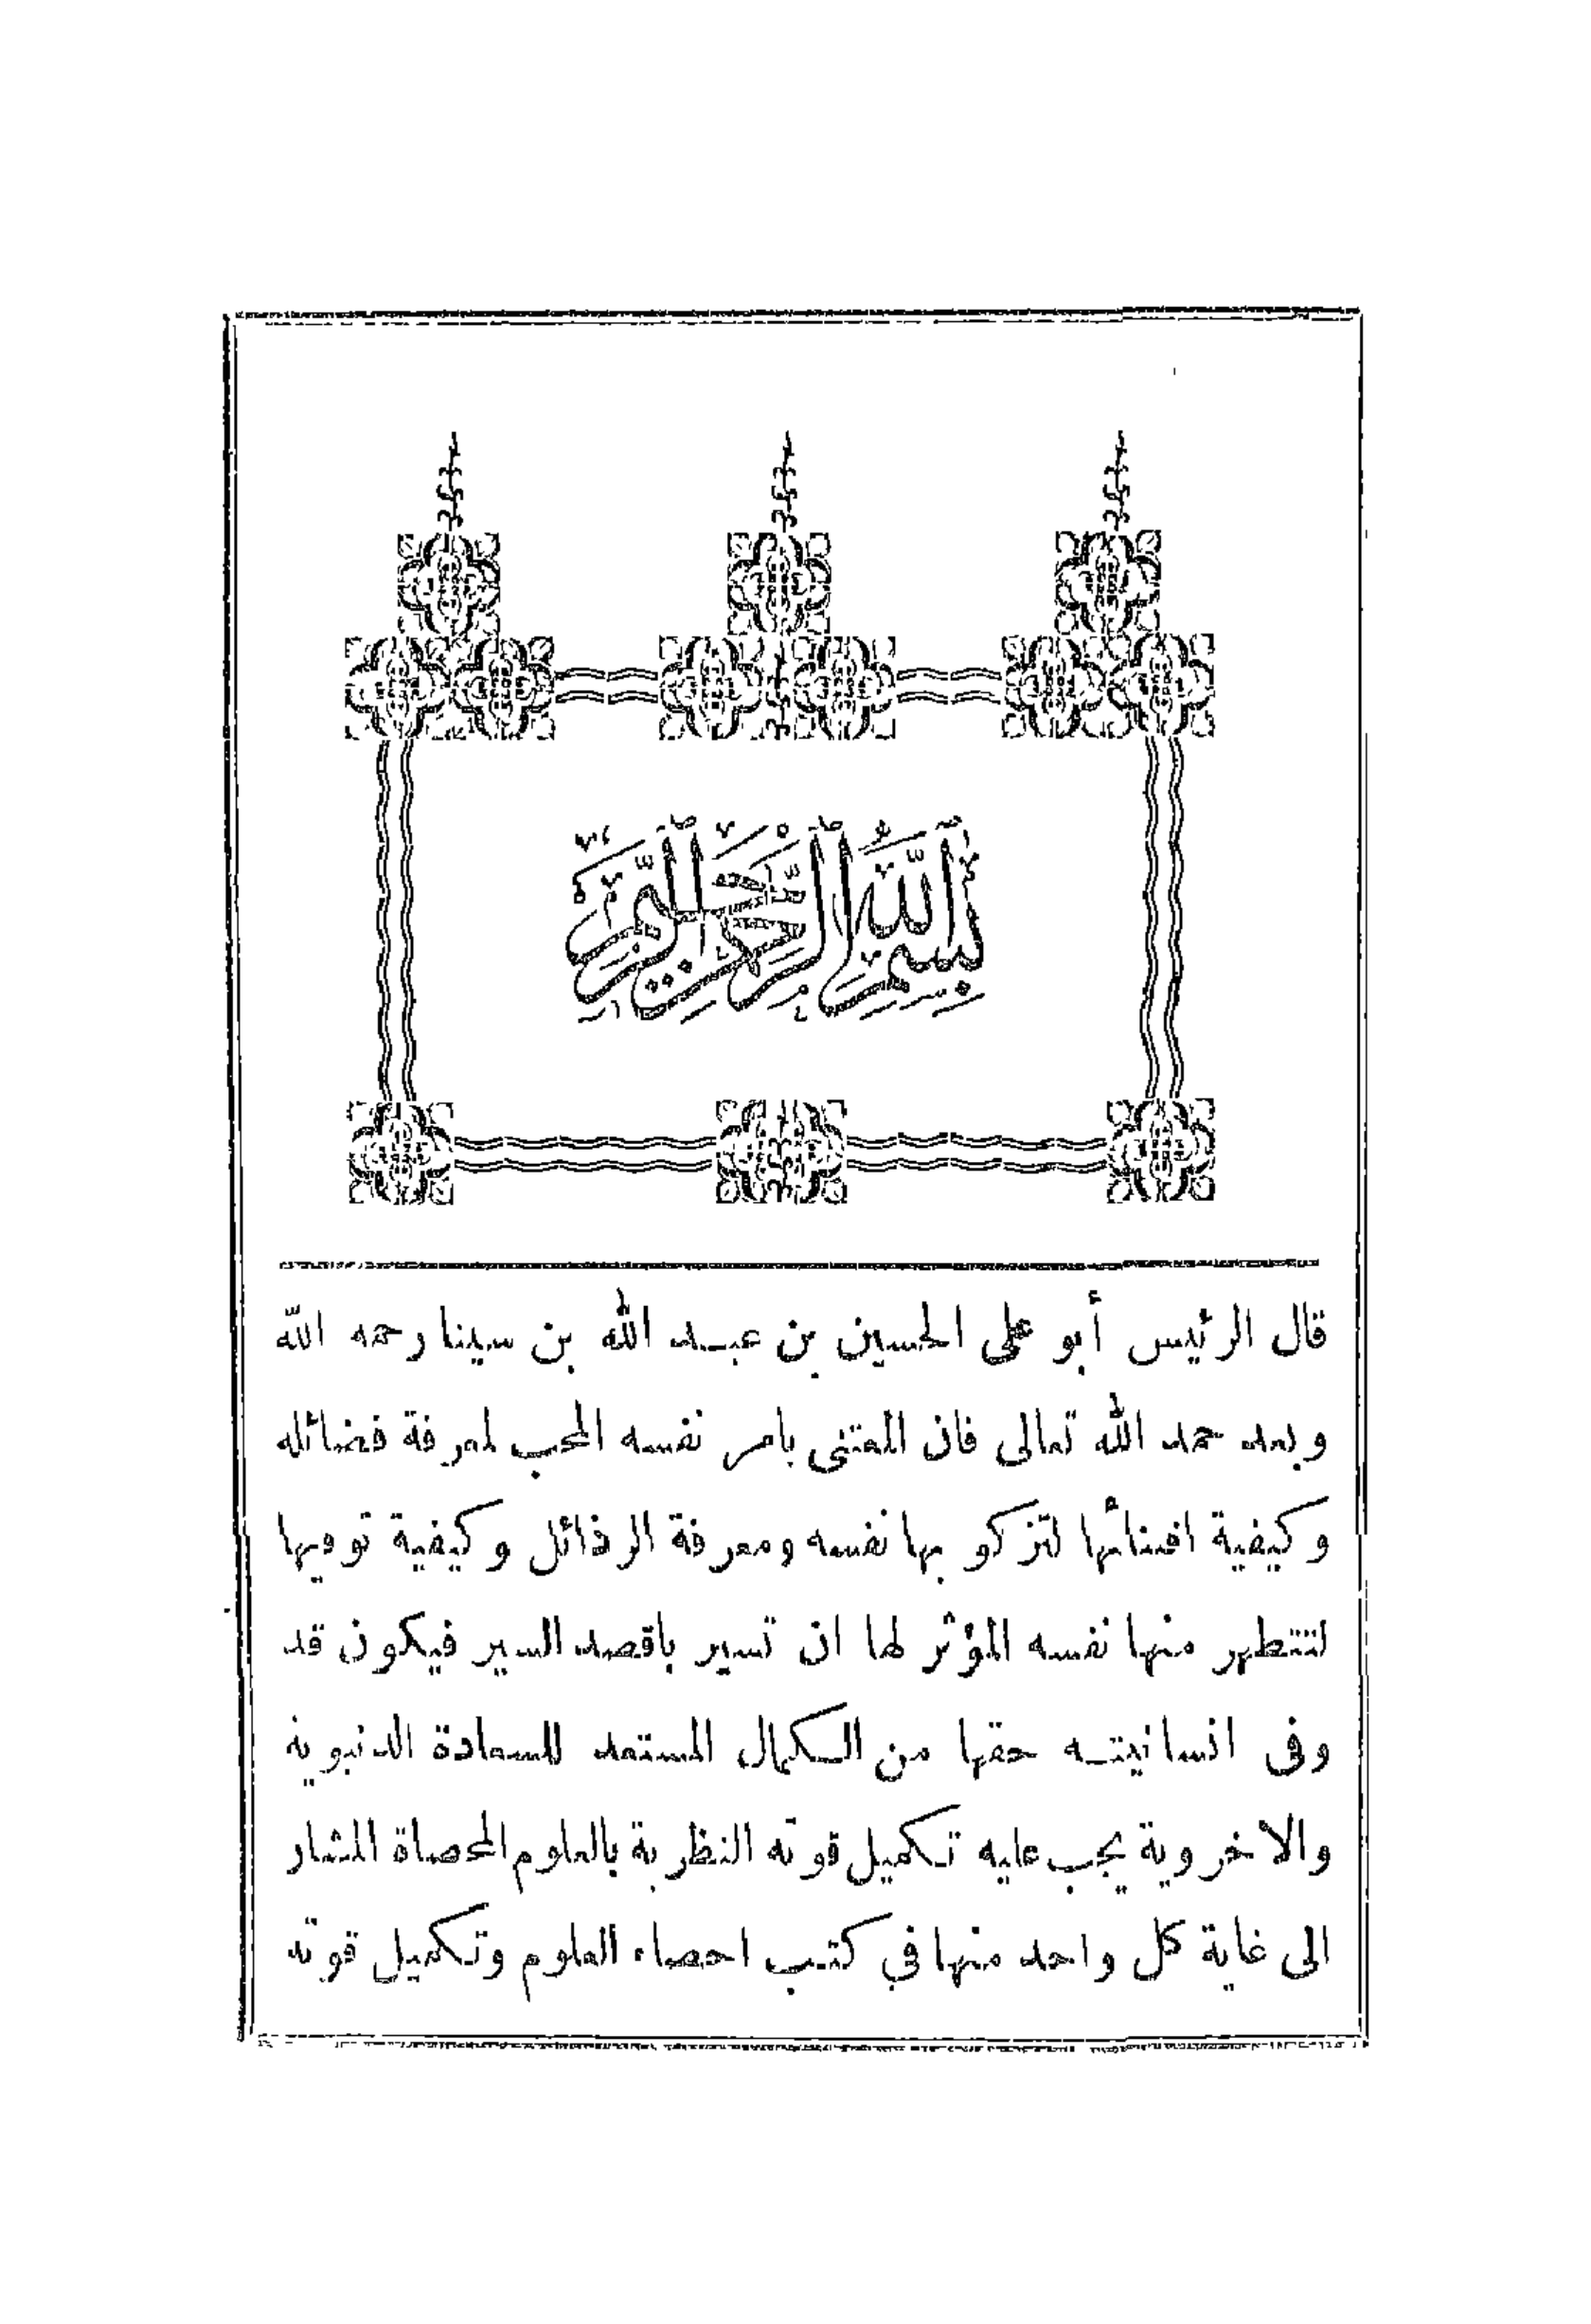 بسم الله الرحمن الرحيم
قال الرئيس أبو على الحسين بن عبد الله بن سينا رحمه الله
وبعد حمد الله تعالى فان المعتنى بامر نفسه المحب لمعرفة فضائله
وكيفية اقتنائها لتزكو بها نفسه ومعرفة الرذائل وكيفية توقيها
لتتطهر منها نفسه المؤثر لها ان تسير باقصد السير فيكون قد
وفى انسانيته حقها من الكمال المستعد للسعادة الدنيوية
والاخروية يجب عليه تكميل قوته النظرية بالعلوم المحصاة المشار
الى غاية كل واحد منها في كتب احصاء العلوم وتكميل قوته